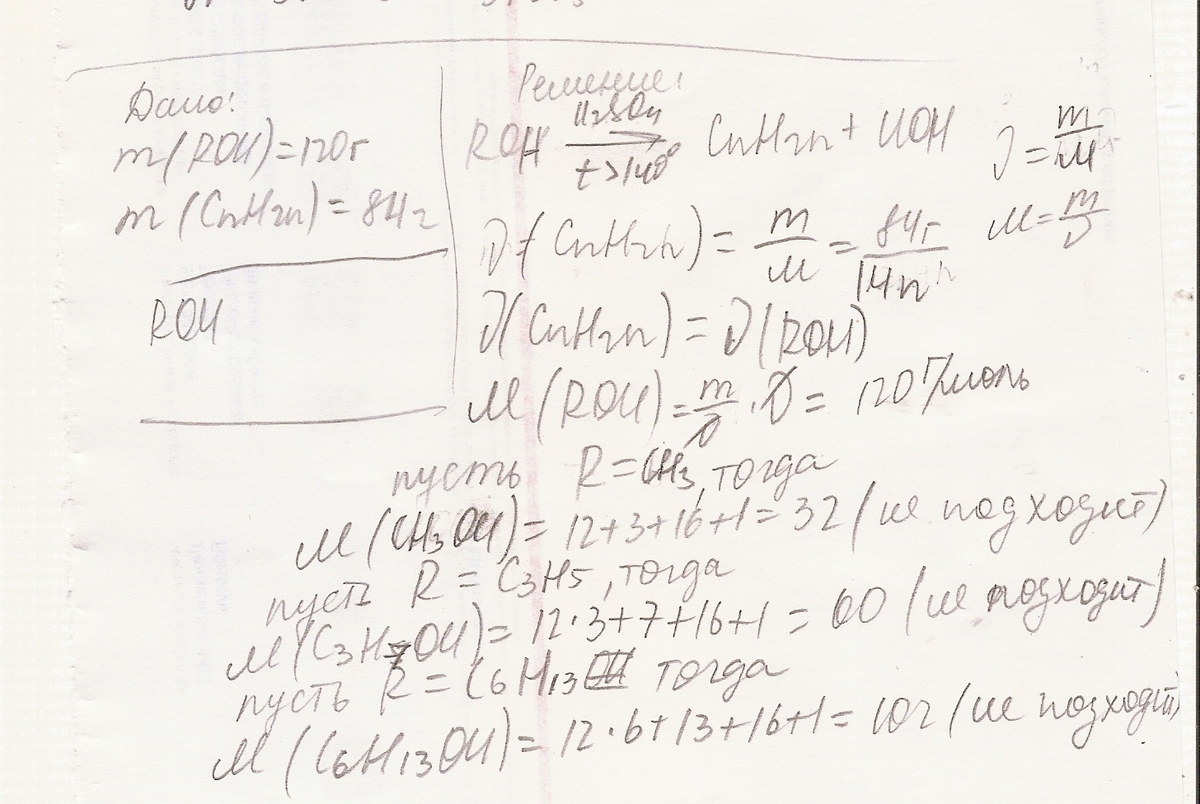 Дано:
m(ROH)=120г
m(CnH2n)=84г
ROH
Решение:
ROH H2SO4 t>140° → CnH2n + HOH
ν = m/M
ν(CnH2n) = m/M = 84г/14n
M = m/ν
ν(CnH2n) = ν(ROH)
M(ROH) = m/ν · ν = 120 г/моль
пусть R=CH3, тогда
M(CH3OH) = 12+3+16+1=32 (не подходит)
пусть R = C3H5, тогда
M(C3H7OH) = 12·3+7+16+1 = 60 (не подходит)
пусть R = C6H13 тогда
M(C6H13OH) = 12·6+13+16+1=102 (не подходит)